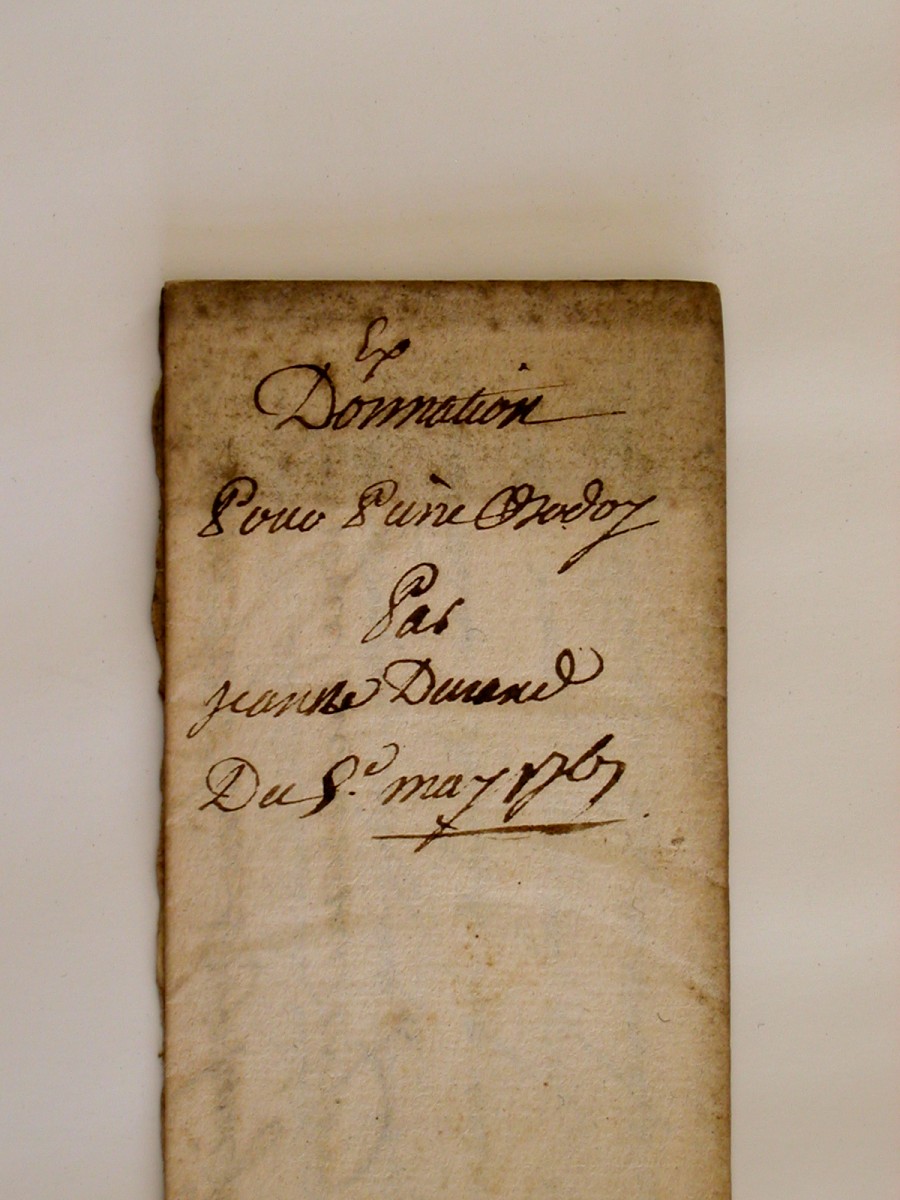 Ex
Donnation
Pour Pierre
Par
jeanne Durand
Du 8.e may 1767